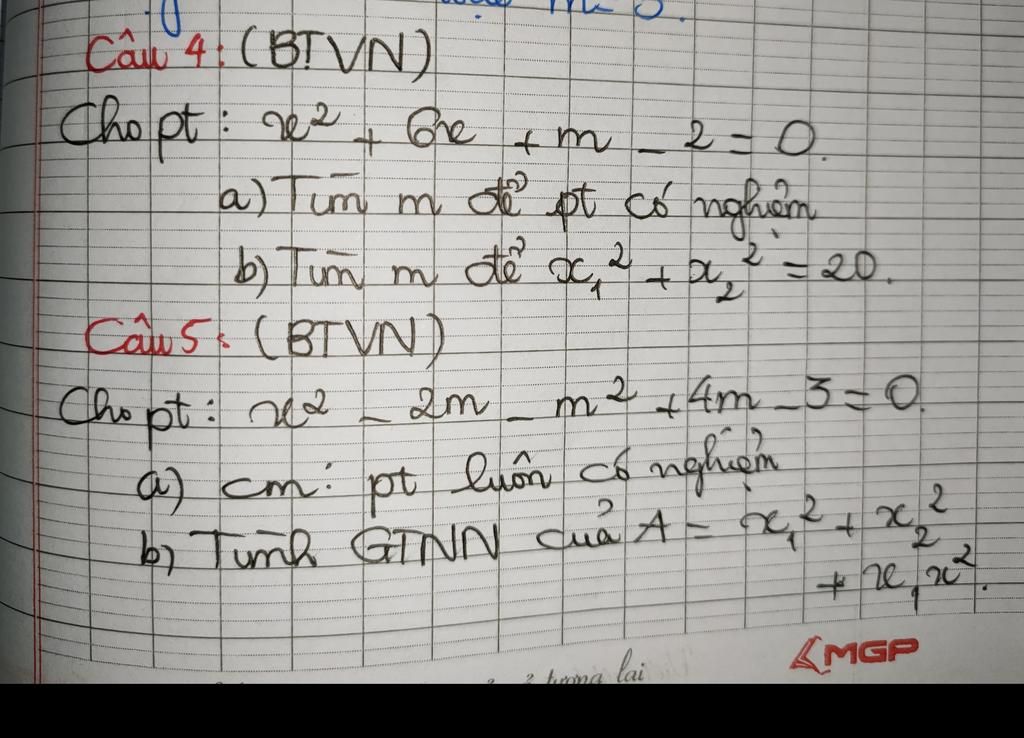 Câu 4: (BTVN)
Cho pt: x² + 6x + m - 2 = 0.
a) Tìm m để pt có nghiệm
b) Tìm m để x₁² + x₂² = 20.
Câu 5: (BTVN)
Cho pt: x² - 2m - m² + 4m - 3 = 0.
a) cm: pt luôn có nghiệm
b) Tính GTNN của A = x₁² + x₂²
+ x₁x².
MGP
tương lai